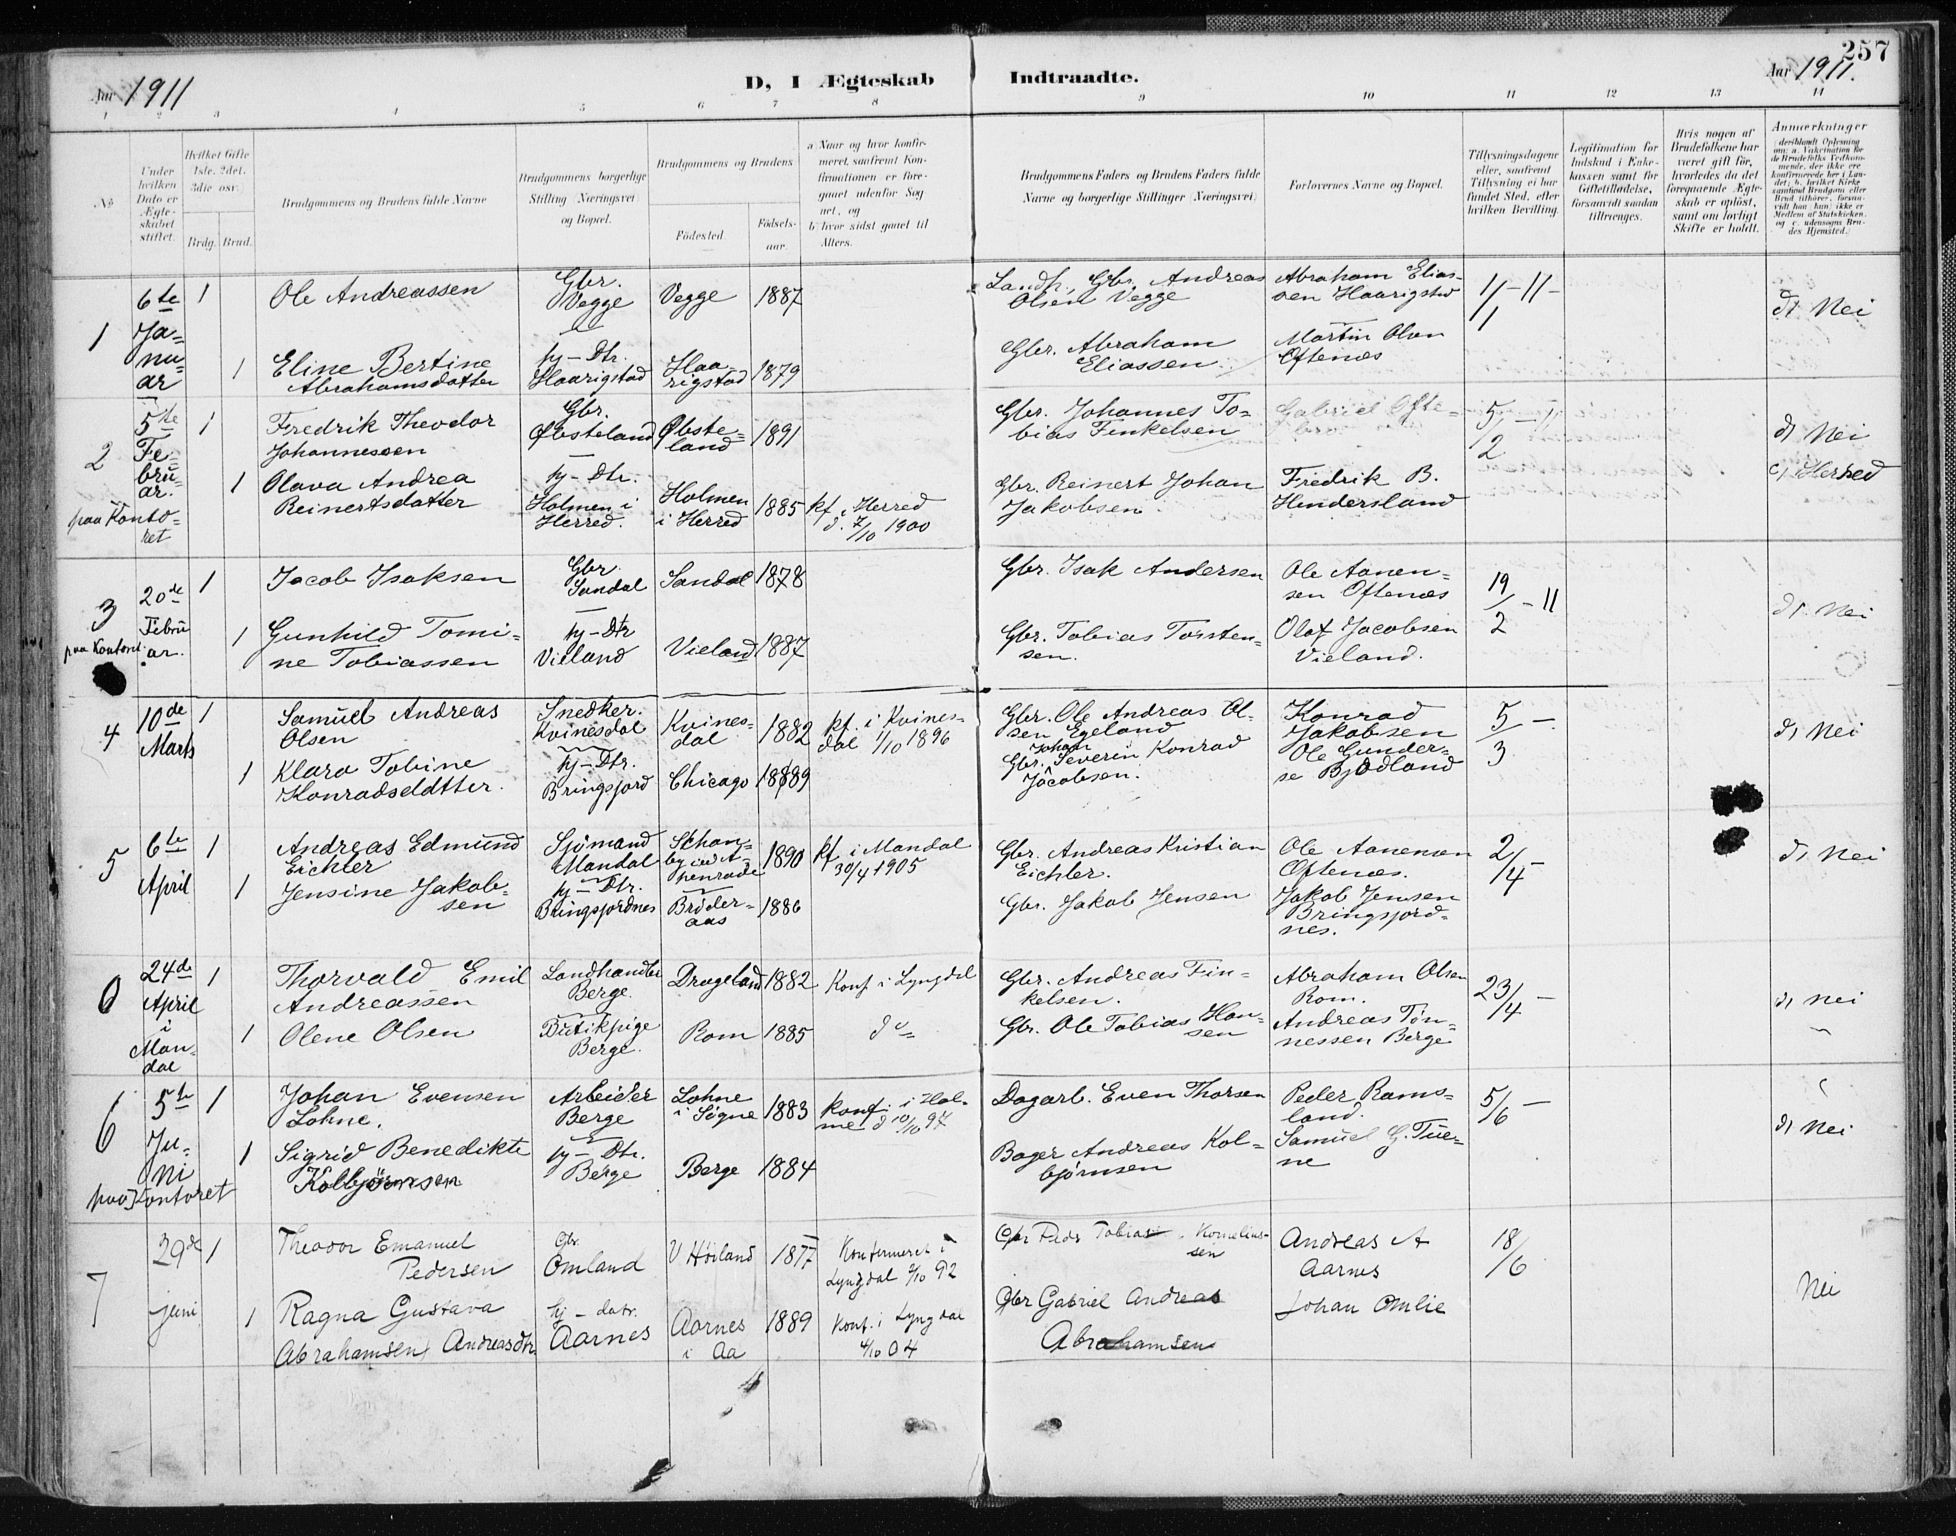 257
Aar 1911
D, I Ægteskab Indtraadte.
Aar 1911.
1 2 3 4 5 6 7 8 9 10 11 12 13 14
No
Under hvilken Dato er Ægteskabet stiftet.
Hvilket Gifte 1ste. 2det. 3die osv.
Brdg. Brud.
Brudgommens og Brudens fulde Navne
Brudgommens borgerlige Stilling (Næringsvei) og Bopæl.
Brudgommens og Brudens
Fødested.
Fødselsaar.
a Naar og hvor konfirmeret, saafremt Konfirmationen er foregaaet udenfor Sognet, og
b hvor sidst gaaet til Alters.
Brudgommens Faders og Brudens Faders fulde Navne og borgerlige Stillinger (Næringsvei)
Forlovernes Navne og Bopæl.
Tillysningsdagene eller, saafremt Tillysning ei har fundet Sted, efter hvilken Bevilling.
Legitimation for Indskud i Enkekassen samt for Giftetilladelse, forsaavidt saadan tiltrænges.
Hvis nogen af Brudefolkene har været gift før, hvorledes da det foregaaende Ægteskab er opløst, samt om lovligt Skifte er holdt.
Anmærkninger
1
6te Januar
1
Ole Andreassen
Gbr. Vegge
Vegge
1887
Landh., Gbr. Andreas Olsen Vegge
Abraham Eliassen Haarigstad
1/1 - 11 -
d, Nei
1
Eline Bertine Abrahamsdatter
hj-Dtr. Haarigstad
Haarigstad
1879
Gbr. Abraham Eliassen
Martin Olsen Oftenæs
2
5te Februar.
paa Kontoret
1
Fredrik Theodor Johannessen
Gbr. Øbsteland
Øbsteland
1891
Gbr. Johannes Tobias Finkelsen
Gabriel Ofte-
5/2 - 11
d, Nei
1
Olava Andrea Reinertsdatter
hj-Dtr. Holmen i Herred.
Holmen i Herred
1885
kf. i Herred d. 7/10 1900
Gbr. Reinert Johan Jakobsen
Fredrik B. Hindersland
c, Herred
3
20de Februar.
paa Kontoret
1
Jacob Isaksen
Gbr. Sandal
Sandal
1878
Gbr. Isak Andersen
Ole Aanensen Oftenæs
19/2 - 11
d, Nei
1
Gunhild Tomine Tobiassen
hj-Dtr Vieland
Vieland
1887
Gbr. Tobias Torstensen.
Olaf Jacobsen Vieland.
4
10de Marts
1
Samuel Andreas Olsen
Snedker. Kvinesdal
Kvinesdal
1882
kf. i Kvinesdal 1/10 1896
Gbr. Ole Andreas Olsen Egeland
Konrad Jakobsen
5/3 -
d, Nei
1
Klara Tobine Konradsddtter.
hj-Dtr. Bringsjord
Chicago
1889
Gbr. Johan Severin Konrad Jacobsen.
Ole Gunderse Bjødland
5
6te April
1
Andreas Edmund Eichler
Sjømand Mandal
Schanby ved Apenrade
1890
kf. i Mandal 30/4 1905
Gbr. Andreas Kristian Eichler.
Ole Aanensen Oftenæs.
2/4 -
d, Nei
1
Jensine Jakobsen
hj-Dtr. Bringsjordnes
Brøderaas
1886
Gbr. Jakob Jensen
Jakob Jensen Bringsjordnes.
0
24de April i Mandal
1
Thorvald Emil Andreassen
Landhandler Berge.
Drageland
1882
Konf i Lyngdal
Gbr. Andreas Finkelsen.
Abraham Olsen Rom.
23/4 -
d, Nei
1
Olene Olsen
Butikpige Berge.
Rom
1885
do
Gbr. Ole Tobias Hansen
Andreas Tønnessen Berge
6
5te Juni
paa Kontoret
1
Johan Evensen Lohne.
Arbeider Berge
Lohne i Søgne
1883
konf. i Holme d 10/10 97
Dagarb. Even Thorsen
Peder Ramsland.
5/6 -
d, Nei
1
Sigrid Benedikte Kolbjørnsen
hj-Dtr. Berge
Berge
1884
Bager Andreas Kolbjørnsen
Samuel G. Tuene
7
29de juni
1
Theodor Emanuel Pedersen
Gbr. Omland
V Høiland
1877
Konfirmeret i Lyngdal 2/10 92
Gbr Peder Tobias Korneliussen
Andreas A Aarnes
18/6
Nei
1
Ragna Gustava Abrahamsen, Andreasdtr.
hj-datr. Aarnes
Aarnes i Aa
1889
Konf. i Lyngdal 4/10 04
Gbr Gabriel Andreas Abrahamsen
Johan Omlie